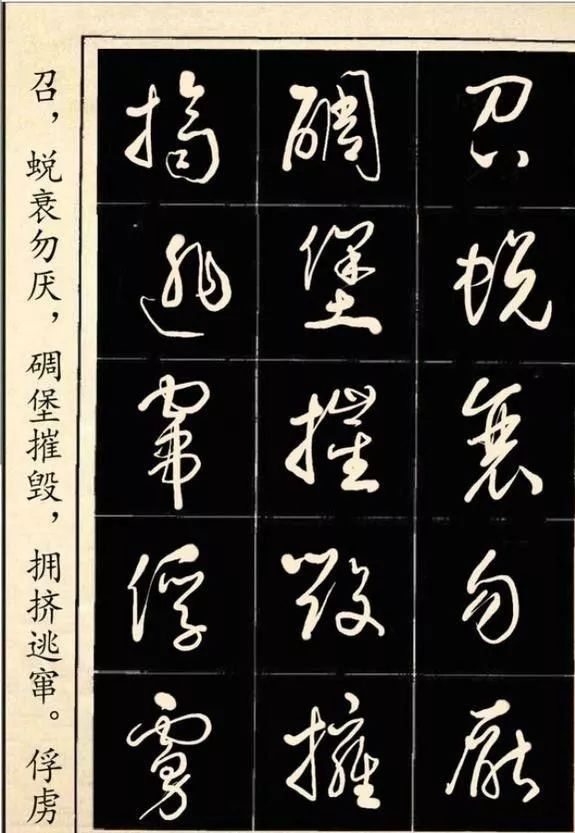 召蜕衰勿厭
碉堡摧毁擁
挤逃窜俘虜
召，蜕衰勿厌，碉堡摧毁，拥挤逃窜。俘虏